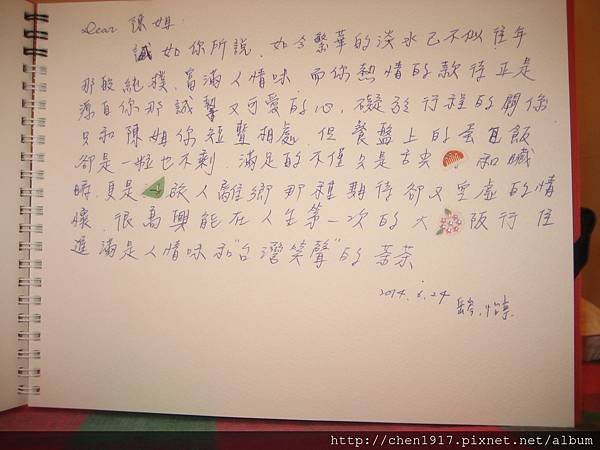 Dear 陳姐:
誠如你所說,如今繁華的淡水已不似往年
那般純樸、富滿人情味,而你熱情的款待正是
源自你那誠摯又可愛的心,礙於行程的關係
只和陳姐你短暫相處,但餐盤上的蛋包飯
卻是一粒也不剩,滿足的不僅只是舌尖 和臟
時,更是 旅人離鄉那種期待卻又空虛的情
懷,很高興能在人生第一次的大 阪行,住
進滿是人情味和"台灣笑聲"的 茶
2014.6.24
http://chen1917.pixnet.net/album